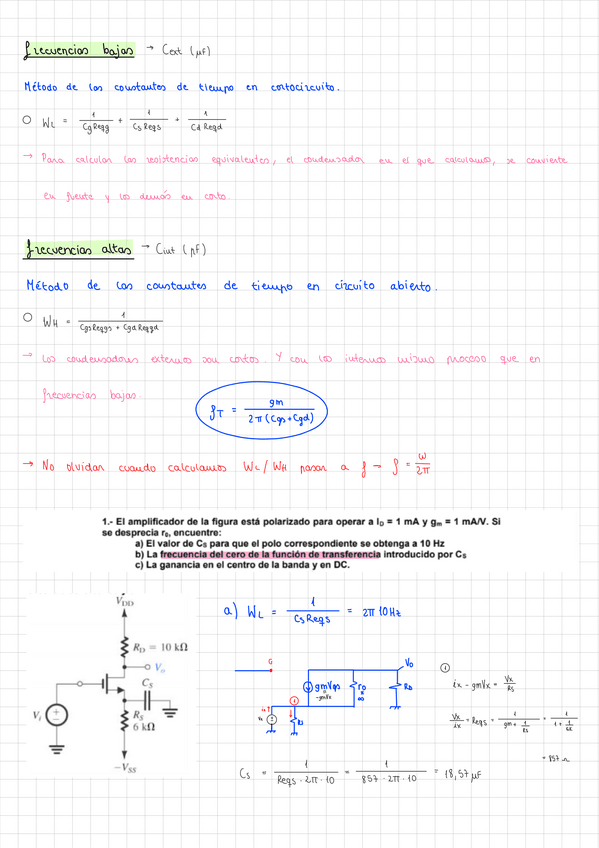 frecuencias bajas → Cext (μF)
Método de las constantes de tiempo en cortocircuito.
○ WL = 1 / CgReqg + 1 / CsReqs + 1 / CdReqd
→ Para calcular las resistencias equivalentes, el condensador en el que calculamos, se convierte
en fuente y los demás en corto.
frecuencias altas → Cint (pF)
Método de las constantes de tiempo en circuito abierto.
○ WH = 1 / CgsReqgs + Cgd Reqgd
→ Los condensadores externos son cortos. Y con los internos mismo proceso que en
frecuencias bajas.
fT = gm / 2π (Cgs + Cgd)
→ No olvidar cuando calculamos WL / WH pasar a f → f = ω / 2π
1.- El amplificador de la figura está polarizado para operar a ID = 1 mA y gm = 1 mA/V. Si
se desprecia ro, encuentre:
a) El valor de CS para que el polo correspondiente se obtenga a 10 Hz
b) La frecuencia del cero de la función de transferencia introducido por CS
c) La ganancia en el centro de la banda y en DC.
VDD
RD = 10 kΩ
Vo
CS
Vi
RS
6 kΩ
-VSS
a) WL = 1 / CsReqs = 2π 10Hz
G
Vo
gmVgs
-gmVx
ro
∞
RD
ix
Vx
①
Rs
①
ix - gmVx = Vx / RS
Vx / ix = Reqs = 1 / gm + 1/RS = 1 / 1 + 1/6K
= 857 Ω
Cs = 1 / Reqs · 2π · 10 = 1 / 857 · 2π · 10 = 18,57 μF